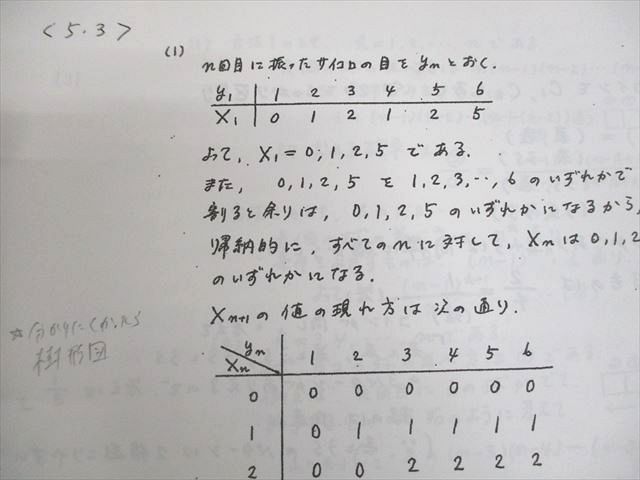 <5.3>
(1)
n回目に振ったサイコロの目を yn とおく.
y1 1 2 3 4 5 6
X1 0 1 2 1 2 5
よって, X1 = 0, 1, 2, 5 である.
また, 0, 1, 2, 5 を 1, 2, 3, …, 6 のいずれかで
割ると余りは, 0, 1, 2, 5 のいずれかになるから,
帰納的に, すべての n に対して, Xn は 0, 1, 2
のいずれかになる.
Xn+1 の値の現れ方は次の通り.
☆分かりにくかったら
樹形図
Xn yn 1 2 3 4 5 6
0 0 0 0 0 0 0
1 0 1 1 1 1 1
2 0 0 2 2 2 2